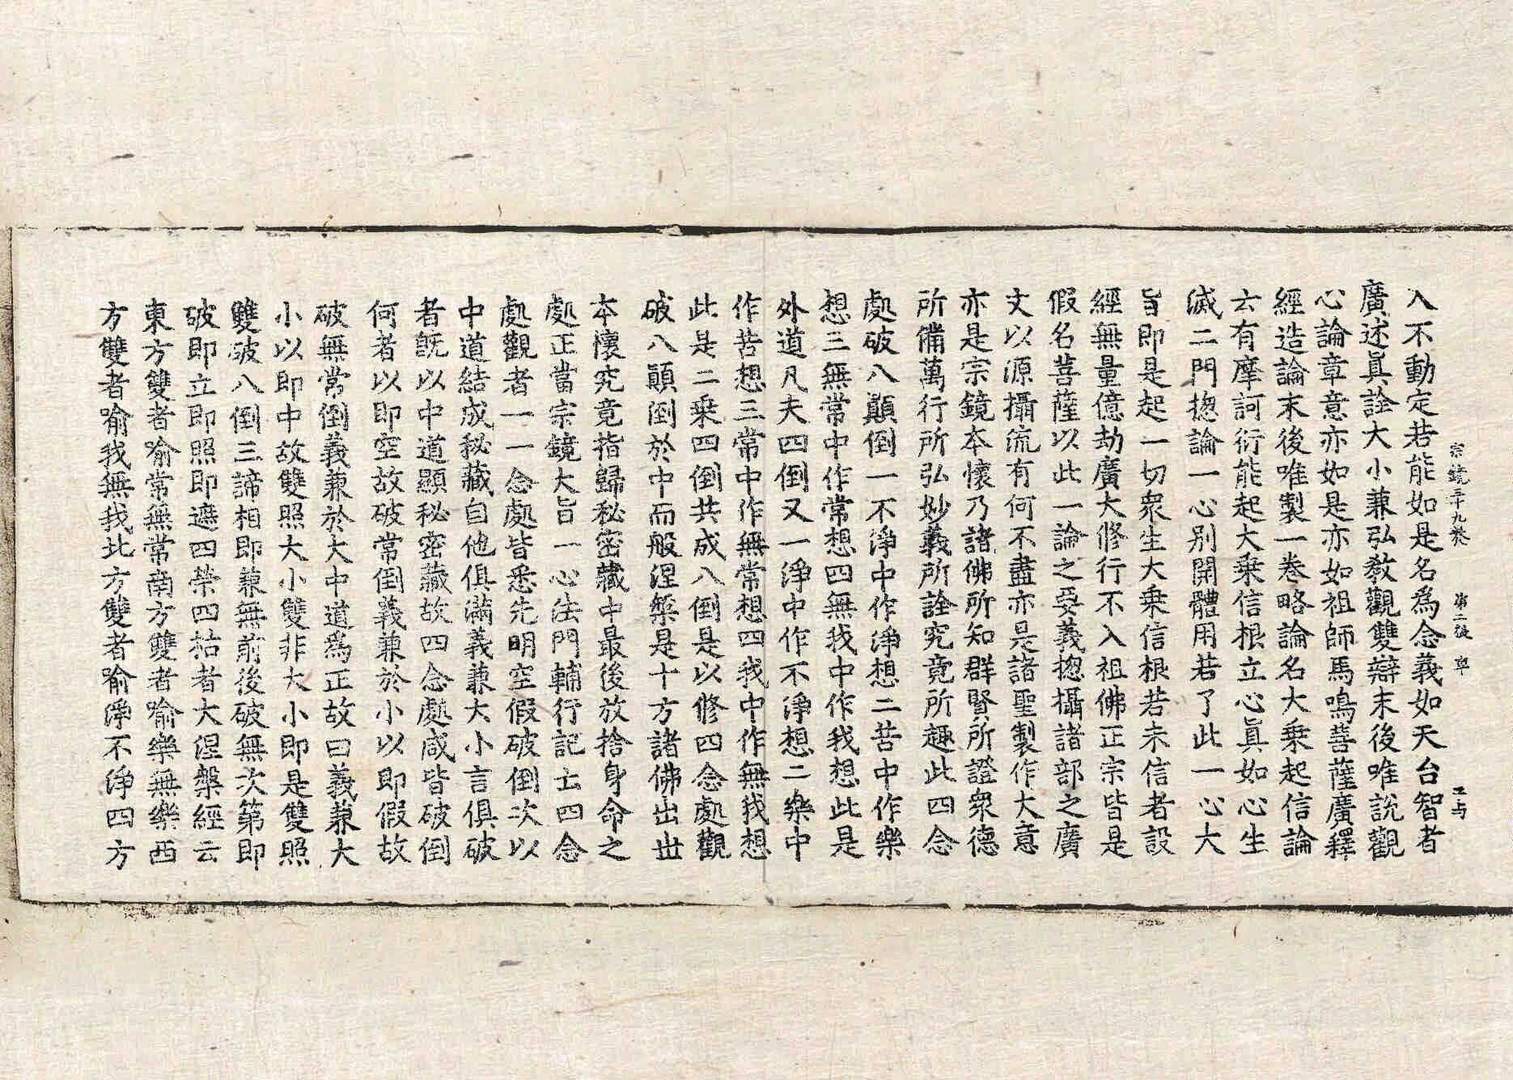 宗鏡三十九卷 第二張 車 工与
入不動定若能如是名爲念義如天台智者
廣述眞詮大小兼弘敎觀雙辯末後唯說觀
心論章意亦如是亦如祖師馬鳴菩薩廣釋
經造論末後唯製一卷略論名大乗起信論
云有摩訶衍能起大乗信根立心眞如心生
滅二門揔論一心別開體用若了此一心大
旨即是起一切衆生大乗信根若未信者設
經無量億劫廣大修行不入祖佛正宗皆是
假名菩薩以此一論之妥義揔攝諸部之廣
文以源攝流有何不盡亦是諸聖製作大意
亦是宗鏡本懷乃諸佛所知群賢所證衆德
所備萬行所弘妙義所詮究竟所趣此四念
處破八顚倒一不淨中作淨想二苦中作樂
想三無常中作常想四無我中作我想此是
外道凡夫四倒又一淨中作不淨想二樂中
作苦想三常中作無常想四我中作無我想
此是二乗四倒共成八倒是以修四念處觀
破八顚倒於中而般涅槃是十方諸佛出世
本懷究竟指歸秘密藏中最後放捨身命之
處正當宗鏡大旨一心法門輔行記云四念
處觀者一一念處皆悉先明空假破倒次以
中道結成秘藏自他俱滿義兼大小言俱破
者旣以中道顯秘密藏故四念處咸皆破倒
何者以即空故破常倒義兼於小以即假故
破無常倒義兼於大中道爲正故曰義兼大
小以即中故雙照大小雙非大小即是雙照
雙破八倒三諦相即兼無前後破無次第即
破即立即照即遮四榮四枯者大涅槃經云
東方雙者喻常無常南方雙者喻樂無樂西
方雙者喻我無我北方雙者喻淨不淨四方